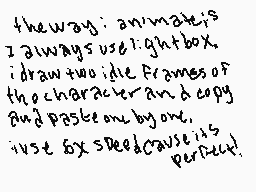 the way i animate is
I always use lightbox,
i draw two idle Frames of
the character and copy
and paste one by one,
i use 6x speed cause its
perfect!